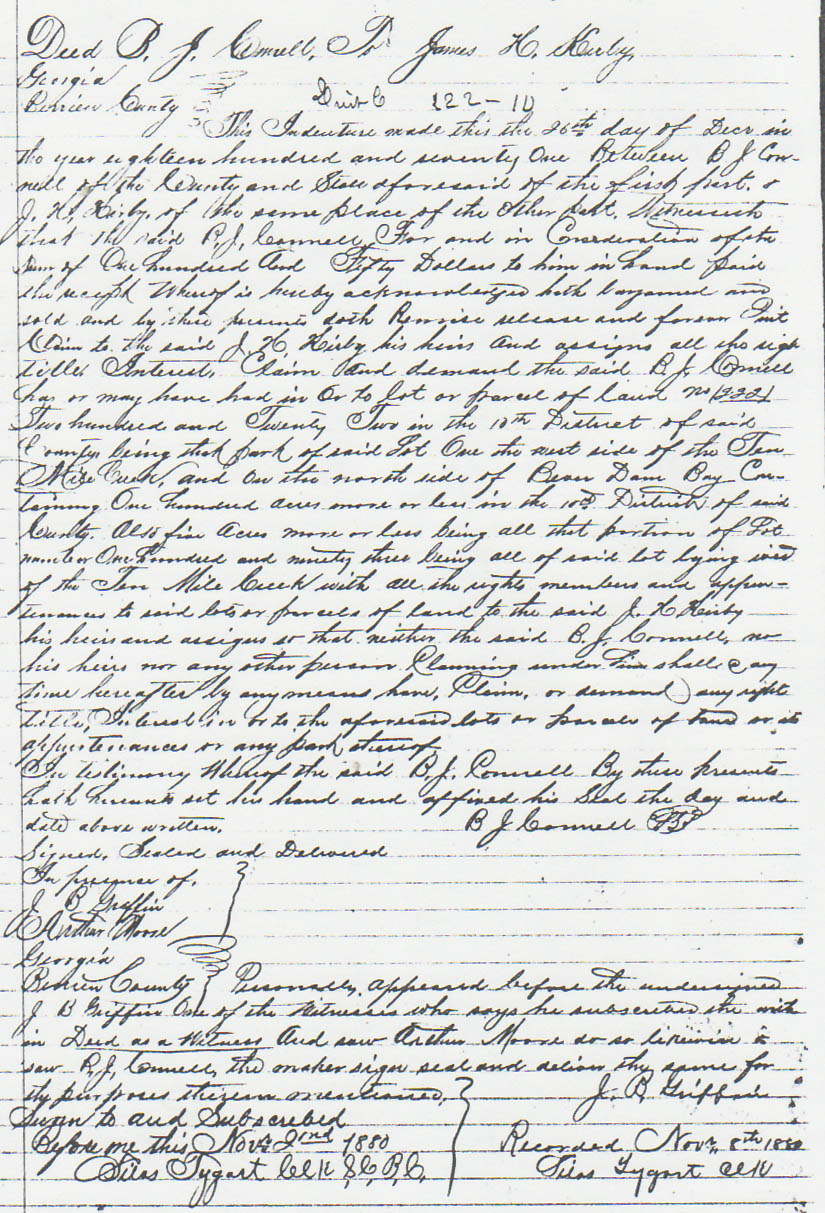 Deed B. J. Connell, To James H. Kirby,
Georgia
Berrien County 122 - 10
This Indenture made this the 26th day of Decr in
the year eighteen hundred and seventy One Between B J Con-
nell of the County and State aforesaid of the first part. &
J. H. Kirby, of the same place of the Other Part, Witnesseth
that the said B, J, Connell, For and in Consideration of the
sum of One hundred And Fifty Dollars to him in hand paid
the receipt Whereof is hereby acknowledged hath bargained and
sold and by these presents doth Remise release and forever Quit
Claim to the said J. H, Kirby his heirs And assigns all the right
title, Interest, Claim And demand the said B J. Connell
has or may have had in Or to lot or parcel of land no (222)
Two hundred and Twenty Two in the 10th District of said
County, being that part of said Lot One the west side of the Ten
Mile Creek, and on the north side of Bever Dam Bay Con-
taining One hundred acres more or less in the 10th District of said
County. Also five Acres more or less being all that portion of Lot
number One hundred and ninety three being all of said lot lying west
of the Ten Mile Creek with all the rights members and appur-
tenances to said lots or parcels of land to the said J. H Kirby
his heirs and assigns so that neither the said B. J. Connell, no
his heirs nor any other person Claiming under him shall @ any
time hereafter by any means have, Claim, or demand any right
title, Interest in or to the aforesaid lots or parcels of land or its
appurtenances or any part thereof,
In testimony Whereof the said B. J. Connell By these presents
hath hereunto set his hand and affixed his Seal the day and
date above written. B J Connell
Signed, Sealed and Delivered
In presence of,
J B Griffin
Arthur Moore
Georgia
Berrien County Personally appeared before the undersigned
J B Griffin One of the Witnesses who says he subscribed the with
in Deed as a Witness And saw Arthur Moore do so likewise &
saw B, J, Connell, the maker sign seal and deliver thy same for
thy purposes therein mentioned, J. B, Griffin
Sworn to and Subscribed
Before me this Novr 2nd 1880 Recorded Novr, 8th 1880
Silas Tygart ClK S, C, B, C, Silas Tygart ClK